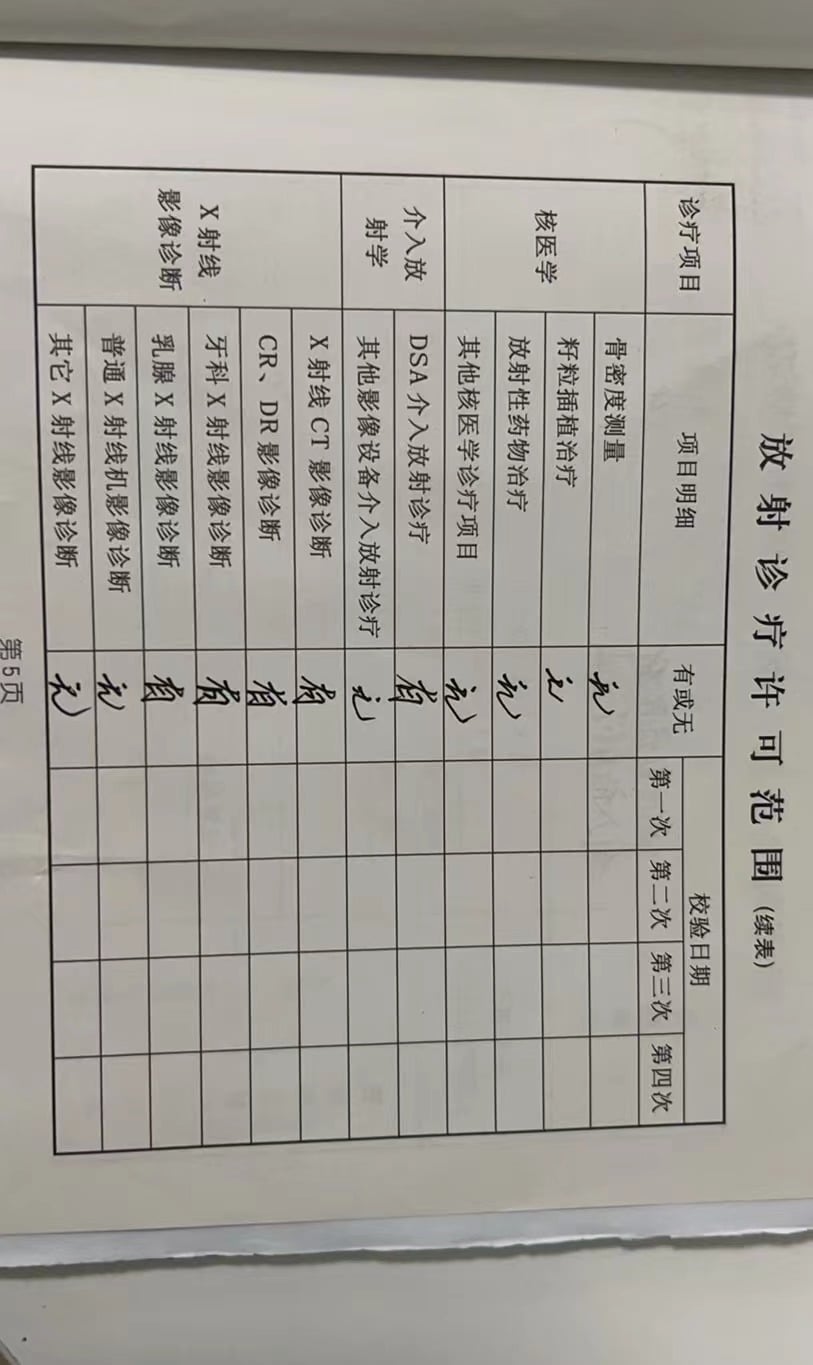 放射诊疗许可范围(续表)
诊疗项目 项目明细 有或无 校验日期
第一次 第二次 第三次 第四次
核医学 骨密度测量 无
籽粒插植治疗 无
放射性药物治疗 无
其他核医学诊疗项目 无
介入放射学 DSA介入放射诊疗 有
其他影像设备介入放射诊疗 无
X射线影像诊断 X射线CT影像诊断 有
CR、DR影像诊断 有
牙科X射线影像诊断 有
乳腺X射线影像诊断 有
普通X射线机影像诊断 无
其它X射线影像诊断 无
第5页